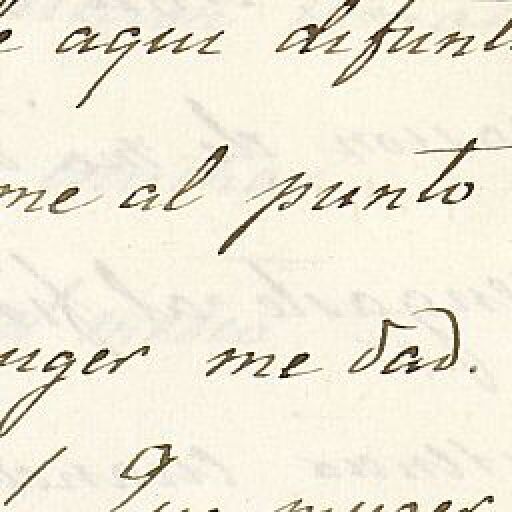 aqui difunt
me al punto
uger me dad.
Que muger